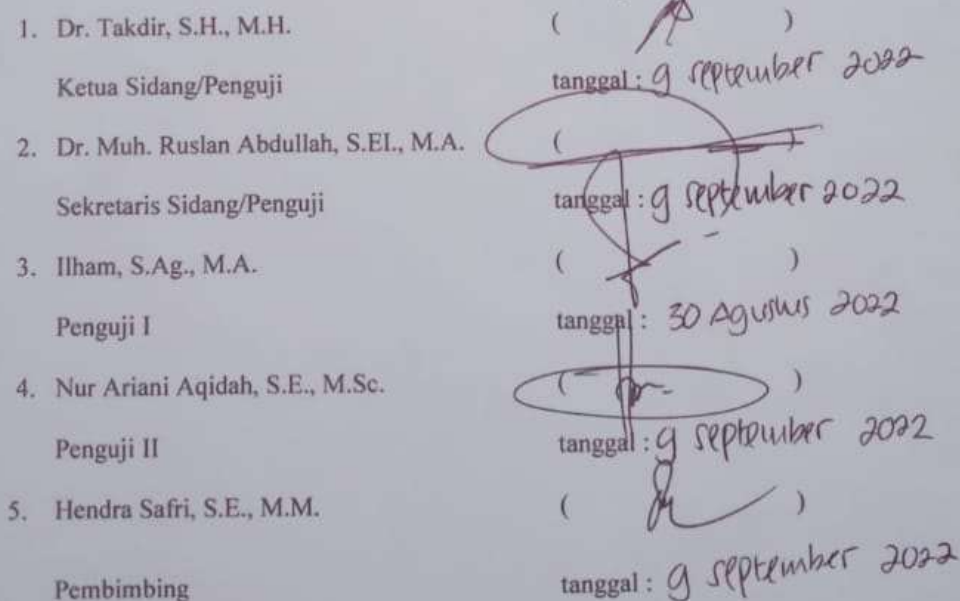 1. Dr. Takdir, S.H., M.H. ( )
Ketua Sidang/Penguji tanggal : 9 september 2022
2. Dr. Muh. Ruslan Abdullah, S.EI., M.A. ( )
Sekretaris Sidang/Penguji tanggal : 9 september 2022
3. Ilham, S.Ag., M.A. ( )
Penguji I tanggal : 30 Agustus 2022
4. Nur Ariani Aqidah, S.E., M.Sc. ( )
Penguji II tanggal : 9 september 2022
5. Hendra Safri, S.E., M.M. ( )
Pembimbing tanggal : 9 september 2022